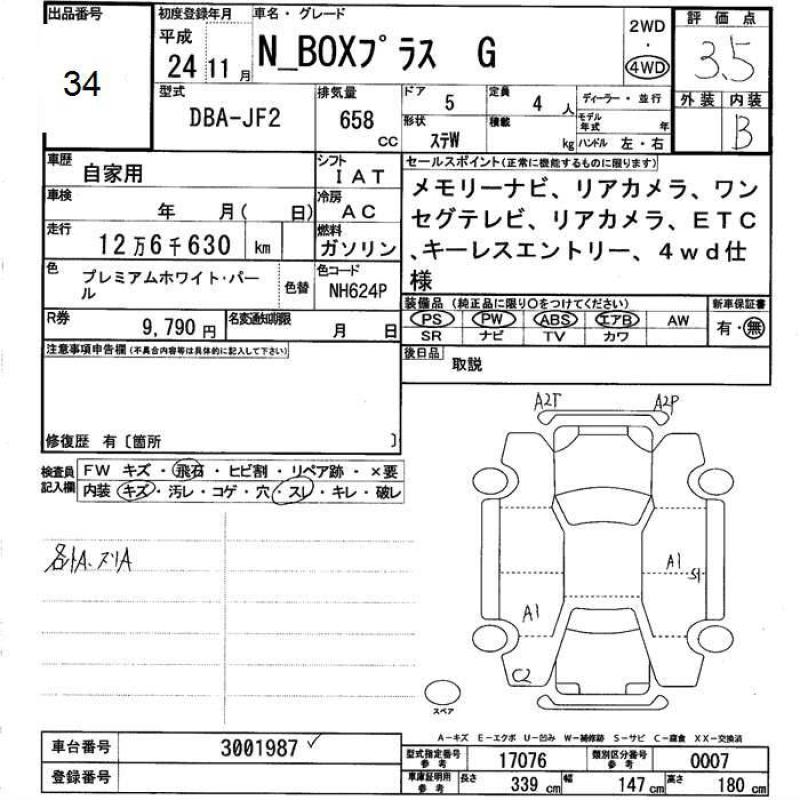 出品番号
34
初度登録年月
平成
24 11 月
車名・グレード
N_BOXプラス G
2WD
・
4WD
評価点
3.5
外装 内装
B
型式
DBA-JF2
排気量
658
CC
ドア
5
定員
4 人
ディーラー・並行
形状
ステW
積載
kg
モデル年式
年
ハンドル 左・右
車歴
自家用
シフト
IAT
車検
年 月( 日)
冷房
AC
走行
12万6千630 km
燃料
ガソリン
色
プレミアムホワイト・パー
ル
色替
色コード
NH624P
R券
9,790 円
名変通知期限
月 日
セールスポイント(正常に機能するものに限ります)
メモリーナビ、リアカメラ、ワン
セグテレビ、リアカメラ、ETC
、キーレスエントリー、4wd仕
様
装備品 (純正品に限り○をつけてください)
新車保証書
PS PW ABS エアB AW
有・無
SR ナビ TV カワ
後日品
取説
注意事項申告欄(不具合内容等は具体的に記入して下さい)
修復歴 有〔箇所 〕
検査員
記入欄
FW キズ・飛石・ヒビ割・リペア跡・×要
内装 キズ・汚レ・コゲ・穴・スレ・キレ・破レ
A2T
A2P
A1
S1
A1
C2
スペア
A-キズ E-エクボ U-凹み W-補修跡 S-サビ C-腐食 XX-交換済
車台番号
3001987
登録番号
型式指定番号
参考
17076
類別区分番号
参考
0007
車庫証明用
参考
長さ
339 cm
幅
147 cm
高さ
180 cm